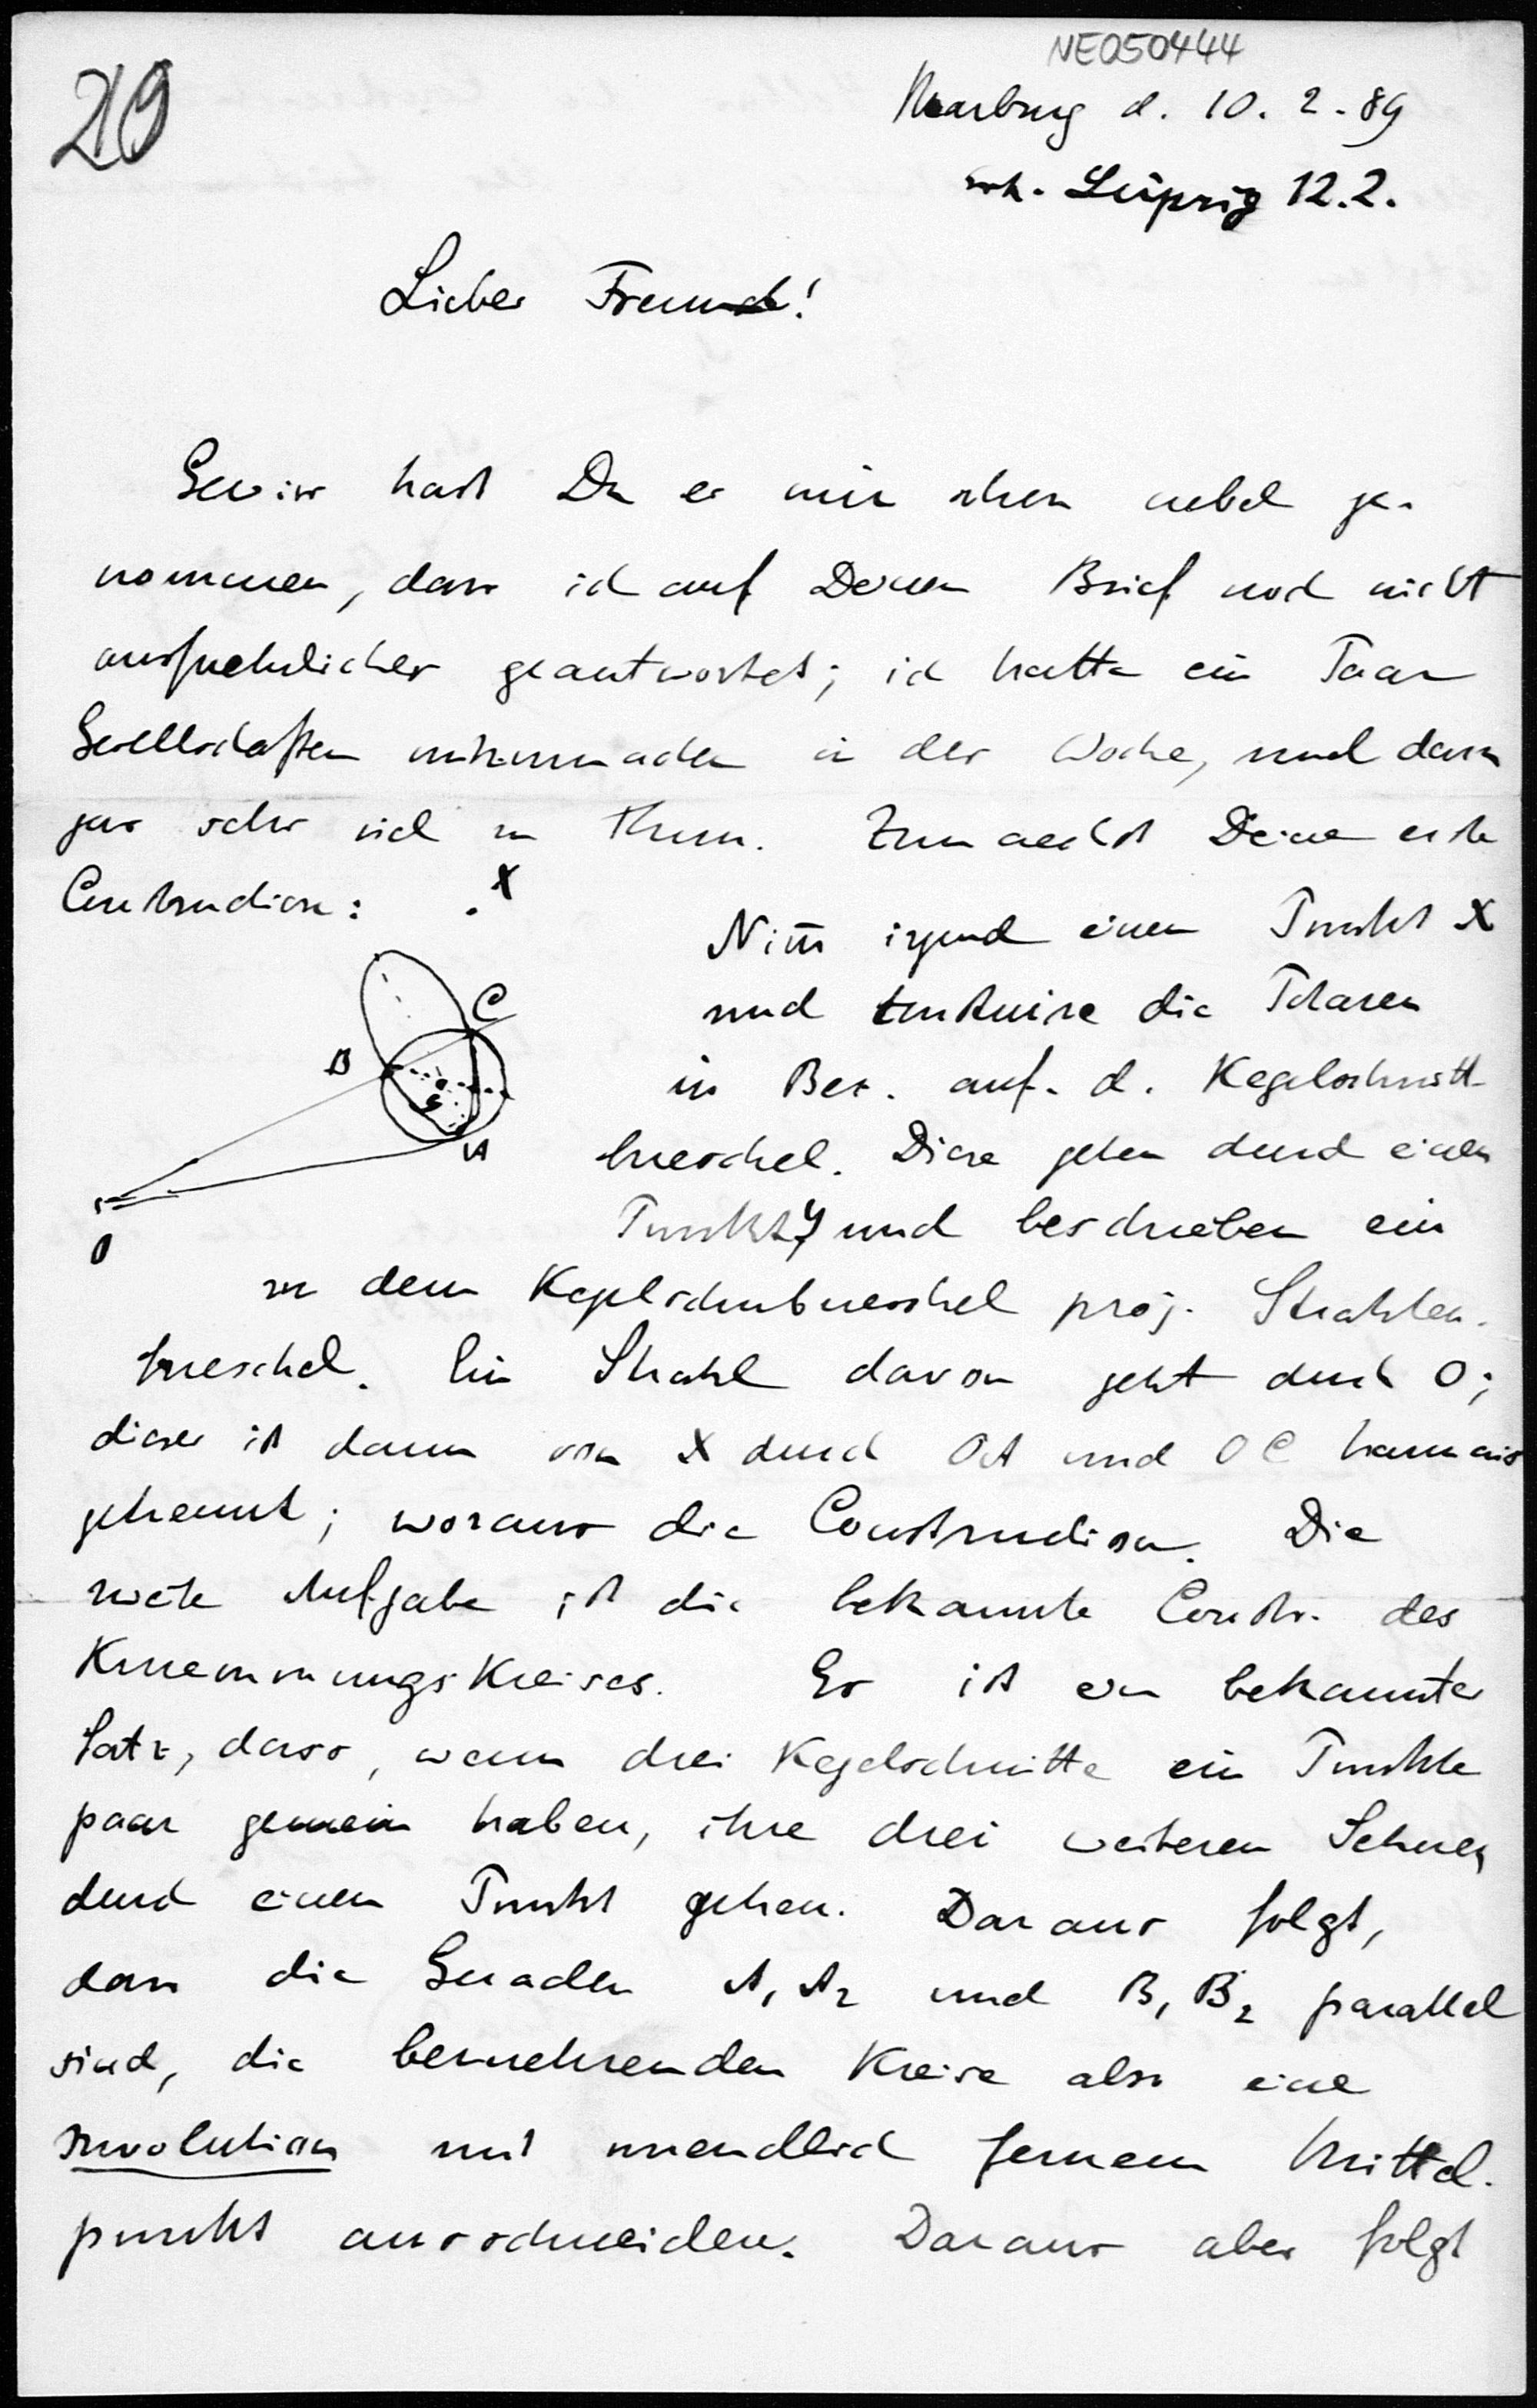 NE050444
20
Marburg d. 10. 2. 89
erh. Leipzig 12.2.
Lieber Freund!
Gewiss hast Du es mir schon uebel ge-
nommen, dass ich auf Deinen Brief noch nicht
ausfuehrlicher geantwortet; ich hatte ein Paar
Gesellschaften mitzumachen in der Woche, und dann
gar sehr viel zu thun. Zunaechst Deine erste
Construction: X
Nim̅ irgend einen Punkt X
und construire die Polaren
in Bez. auf. d. Kegelschnitt-
bueschel. Diese gehen durch einen
Punkt Y und beschreiben ein
C
B
S
A
O
zu dem Kegelschnbueschel proj. Strahlen-
bueschel. Ein Strahl davon geht durch O;
dieser ist dann von X durch OA und OC harmonisch
getrennt; woraus die Construction. Die
zweite Aufgabe ist die bekannte Constr. des
Kruemmungskreises. Es ist ein bekannter
Satz, dass, wenn drei Kegelschnitte ein Punkte
paar gemein haben, ihre drei weiteren Sehnen
durch einen Punkt gehen. Daraus folgt,
dass die Geraden A₁ A₂ und B₁ B₂ parallel
sind, die beruehrenden Kreise also eine
Involution mit unendlich fernem Mittel-
punkt ausschneiden. Daraus aber folgt